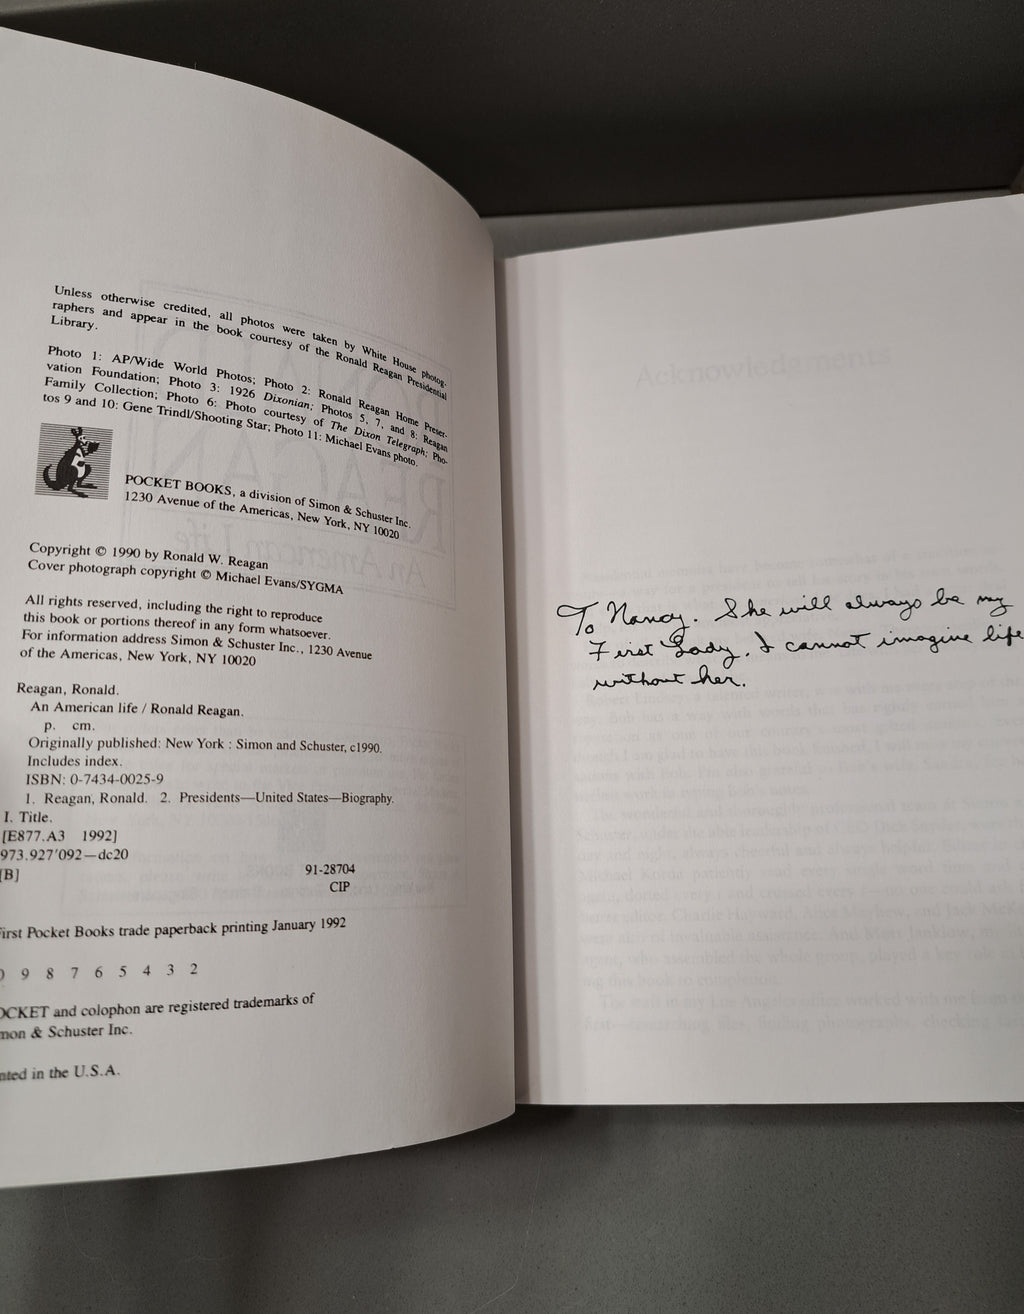 Unless otherwise credited, all photos were taken by White House photog-
raphers and appear in the book courtesy of the Ronald Reagan Presidential
Library.
Photo 1: AP/Wide World Photos; Photo 2: Ronald Reagan Home Preser-
vation Foundation; Photo 3: 1926 Dixonian; Photos 5, 7, and 8: Reagan
Family Collection; Photo 6: Photo courtesy of The Dixon Telegraph; Pho-
tos 9 and 10: Gene Trindl/Shooting Star; Photo 11: Michael Evans photo.
POCKET BOOKS, a division of Simon & Schuster Inc.
1230 Avenue of the Americas, New York, NY 10020
Copyright © 1990 by Ronald W. Reagan
Cover photograph copyright © Michael Evans/SYGMA
All rights reserved, including the right to reproduce
this book or portions thereof in any form whatsoever.
For information address Simon & Schuster Inc., 1230 Avenue
of the Americas, New York, NY 10020
Reagan, Ronald.
An American life / Ronald Reagan.
p. cm.
Originally published: New York : Simon and Schuster, c1990.
Includes index.
ISBN: 0-7434-0025-9
1. Reagan, Ronald. 2. Presidents—United States—Biography.
I. Title.
[E877.A3 1992]
973.927'092—dc20
[B] 91-28704
CIP
irst Pocket Books trade paperback printing January 1992
9 8 7 6 5 4 3 2
OCKET and colophon are registered trademarks of
mon & Schuster Inc.
nted in the U.S.A.
To Nancy. She will always be my
First Lady. I cannot imagine life
without her.
Acknowledgments